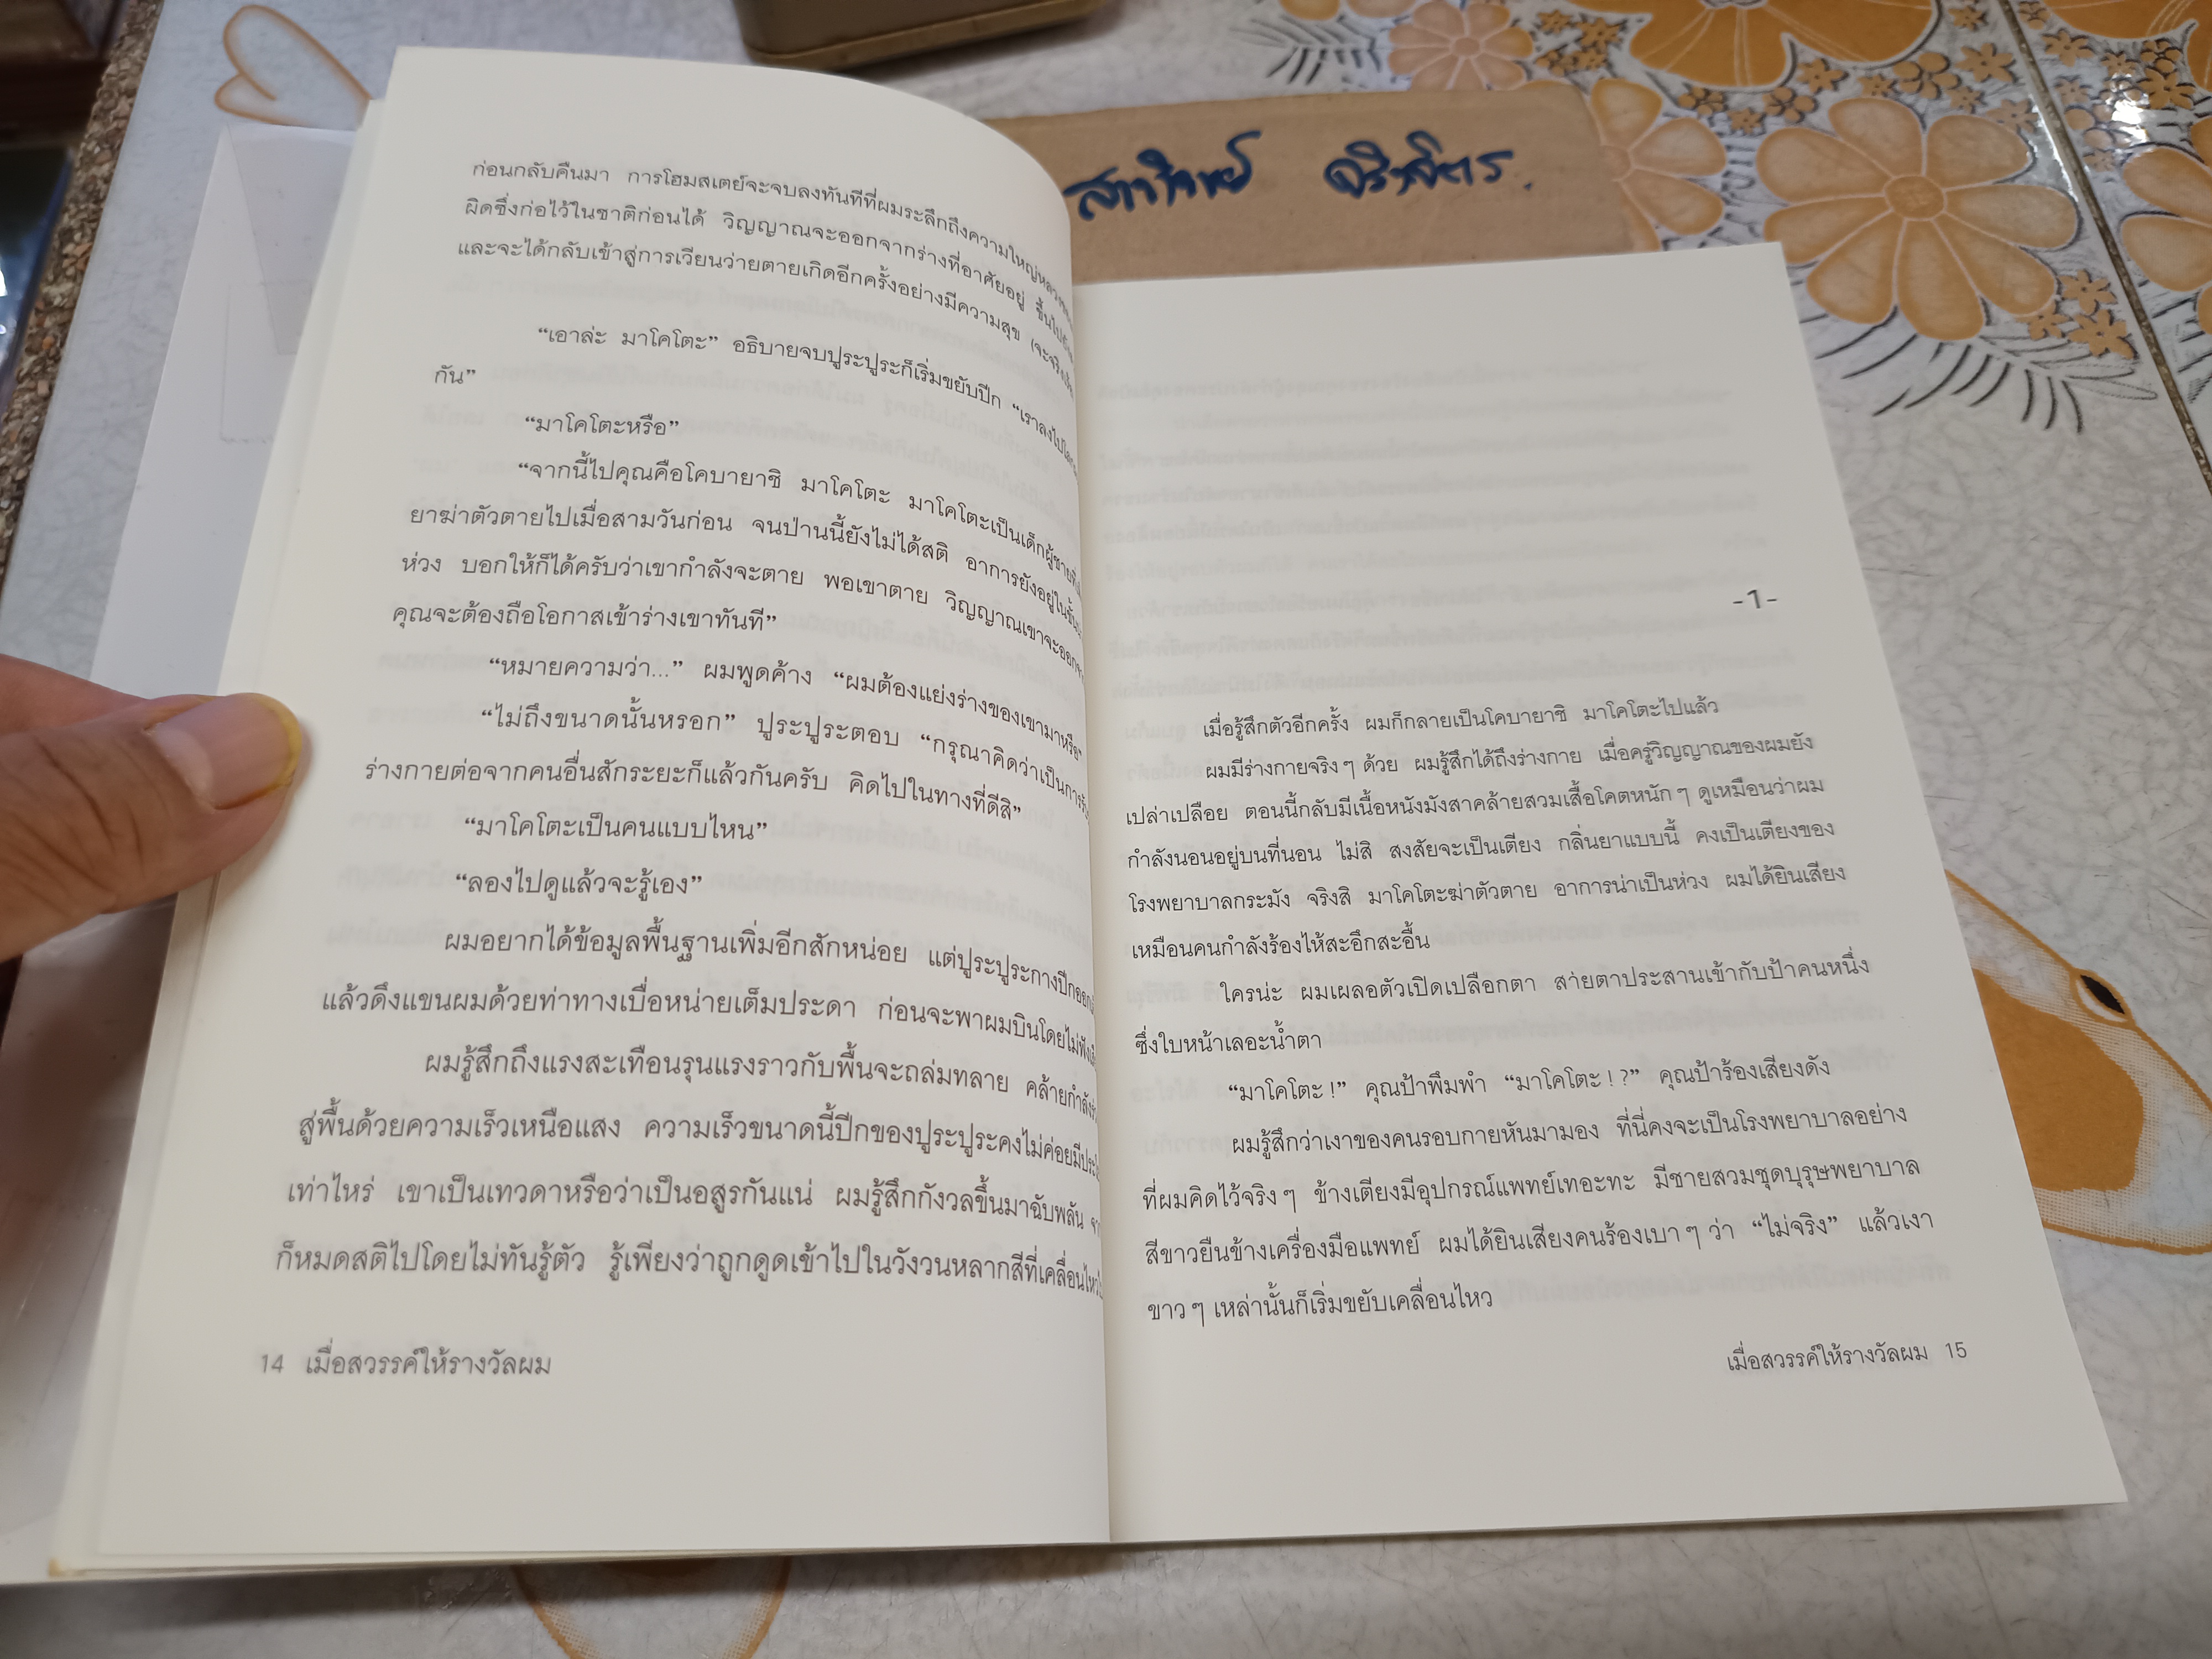 ก่อนกลับคืนมา การโฮมสเตย์จะจบลงทันทีที่ผมระลึกถึงความใหญ่หลวงของ
ผิดซึ่งก่อไว้ในชาติก่อนได้ วิญญาณจะออกจากร่างที่อาศัยอยู่ ขึ้นไป
และจะได้กลับเข้าสู่การเวียนว่ายตายเกิดอีกครั้งอย่างมีความสุข (จะจริง
“เอาล่ะ มาโคโตะ” อธิบายจบปูระปูระก็เริ่มขยับปีก “เราลงไป
กัน”
“มาโคโตะหรือ”
“จากนี้ไปคุณคือโคบายาชิ มาโคโตะ มาโคโตะเป็นเด็กผู้ชายที่
ยาฆ่าตัวตายไปเมื่อสามวันก่อน จนป่านนี้ยังไม่ได้สติ อาการยังอยู่ในขั้น
ห่วง บอกให้ก็ได้ครับว่าเขากำลังจะตาย พอเขาตาย วิญญาณเขาจะออก
คุณจะต้องถือโอกาสเข้าร่างเขาทันที”
“หมายความว่า...” ผมพูดค้าง “ผมต้องแย่งร่างของเขามาหรือ”
“ไม่ถึงขนาดนั้นหรอก” ปูระปูระตอบ “กรุณาคิดว่าเป็นการ
ร่างกายต่อจากคนอื่นสักระยะก็แล้วกันครับ คิดไปในทางที่ดีสิ”
“มาโคโตะเป็นคนแบบไหน”
“ลองไปดูแล้วจะรู้เอง”
ผมอยากได้ข้อมูลพื้นฐานเพิ่มอีกสักหน่อย แต่ปูระปูระกางปีกออก
แล้วดึงแขนผมด้วยท่าทางเบื่อหน่ายเต็มประดา ก่อนจะพาผมบินโดยไม่ฟัง
ผมรู้สึกถึงแรงสะเทือนรุนแรงราวกับพื้นจะถล่มทลาย คล้ายกำลัง
สู่พื้นด้วยความเร็วเหนือแสง ความเร็วขนาดนี้ปีกของปูระปูระคงไม่ค่อยมี
เท่าไหร่ เขาเป็นเทวดาหรือว่าเป็นอสูรกันแน่ ผมรู้สึกกังวลขึ้นมาฉับพลัน
ก็หมดสติไปโดยไม่ทันรู้ตัว รู้เพียงว่าถูกดูดเข้าไปในวังวนหลากสีที่เคลื่อนไหว
14 เมื่อสวรรค์ให้รางวัลผม
-1-
เมื่อรู้สึกตัวอีกครั้ง ผมก็กลายเป็นโคบายาชิ มาโคโตะไปแล้ว
ผมมีร่างกายจริงๆ ด้วย ผมรู้สึกได้ถึงร่างกาย เมื่อครู่วิญญาณของผมยัง
เปล่าเปลือย ตอนนี้กลับมีเนื้อหนังมังสาคล้ายสวมเสื้อโคตหนักๆ ดูเหมือนว่าผม
กำลังนอนอยู่บนที่นอน ไม่สิ สงสัยจะเป็นเตียง กลิ่นยาแบบนี้ คงเป็นเตียงของ
โรงพยาบาลกระมัง จริงสิ มาโคโตะฆ่าตัวตาย อาการน่าเป็นห่วง ผมได้ยินเสียง
เหมือนคนกำลังร้องไห้สะอึกสะอื้น
ใครน่ะ ผมเผลอตัวเปิดเปลือกตา สายตาประสานเข้ากับป้าคนหนึ่ง
ซึ่งใบหน้าเลอะน้ำตา
“มาโคโตะ!” คุณป้าพึมพำ “มาโคโตะ!?” คุณป้าร้องเสียงดัง
ผมรู้สึกว่าเงาของคนรอบกายหันมามอง ที่นี่คงจะเป็นโรงพยาบาลอย่าง
ที่ผมคิดไว้จริงๆ ข้างเตียงมีอุปกรณ์แพทย์เทอะทะ มีชายสวมชุดบุรุษพยาบาล
สีขาวยืนข้างเครื่องมือแพทย์ ผมได้ยินเสียงคนร้องเบาๆ ว่า “ไม่จริง” แล้วเงา
ขาวๆ เหล่านั้นก็เริ่มขยับเคลื่อนไหว
เมื่อสวรรค์ให้รางวัลผม 15